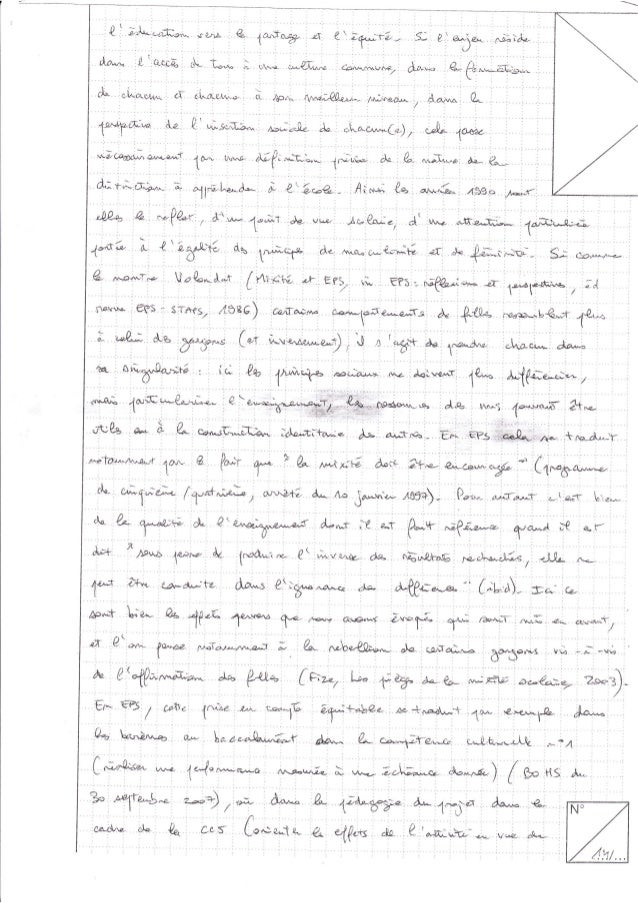 l'éducation vers le partage et l'équité. Si l'enjeu réside
dans l'accès de tous à une culture commune, dans la formation
de chacun et chacune à son meilleur niveau, dans la
perspective de l'insertion sociale de chacun(e), cela passe
nécessairement par une définition précise de la nature de la
distinction à appréhender à l'école. Ainsi les années 1990 sont
elles le reflet, d'un point de vue scolaire, d'une attention particulière
portée à l'égalité des principes de masculinité et de féminité. Si comme
le montre Volondat (Mixité et EPS, in EPS : réflexions et perspectives, éd
revue EPS - STAPS, 1986) certains comportements de filles ressemblent plus
à celui des garçons (et inversement), il s'agit de prendre chacun dans
sa singularité : ici les principes sociaux ne doivent plus différencier,
mais particulariser l'enseignement, les ressources des uns pouvant être
utiles ou à la construction identitaire des autres. En EPS cela se traduit
notamment par le fait que "la mixité doit être encouragée" (programme
de cinquième / quatrième, arrêté du 10 janvier 1997). Pour autant c'est bien
de la qualité de l'enseignement dont il est fait référence quand il est
dit "sous peine de produire l'inverse des résultats recherchés, elle ne
peut être conduite dans l'ignorance des différences" (ibid). Ici ce
sont bien les effets pervers que nous avons évoqués qui sont mis en avant,
et l'on pense notamment à la rebellion de certains garçons vis-à-vis
de l'affirmation des filles (Fize, Les pièges de la mixité scolaire, 2003).
En EPS, cette prise en compte équitable se traduit par exemple dans
les barèmes au baccalauréat dans la compétence culturelle n°1
(réaliser une performance mesurée à une échéance donnée) (BO HS du
30 septembre 2007), où dans la pédagogie du projet dans le
cadre de la CC5 (orienter les effets de l'activité en vue de
N°